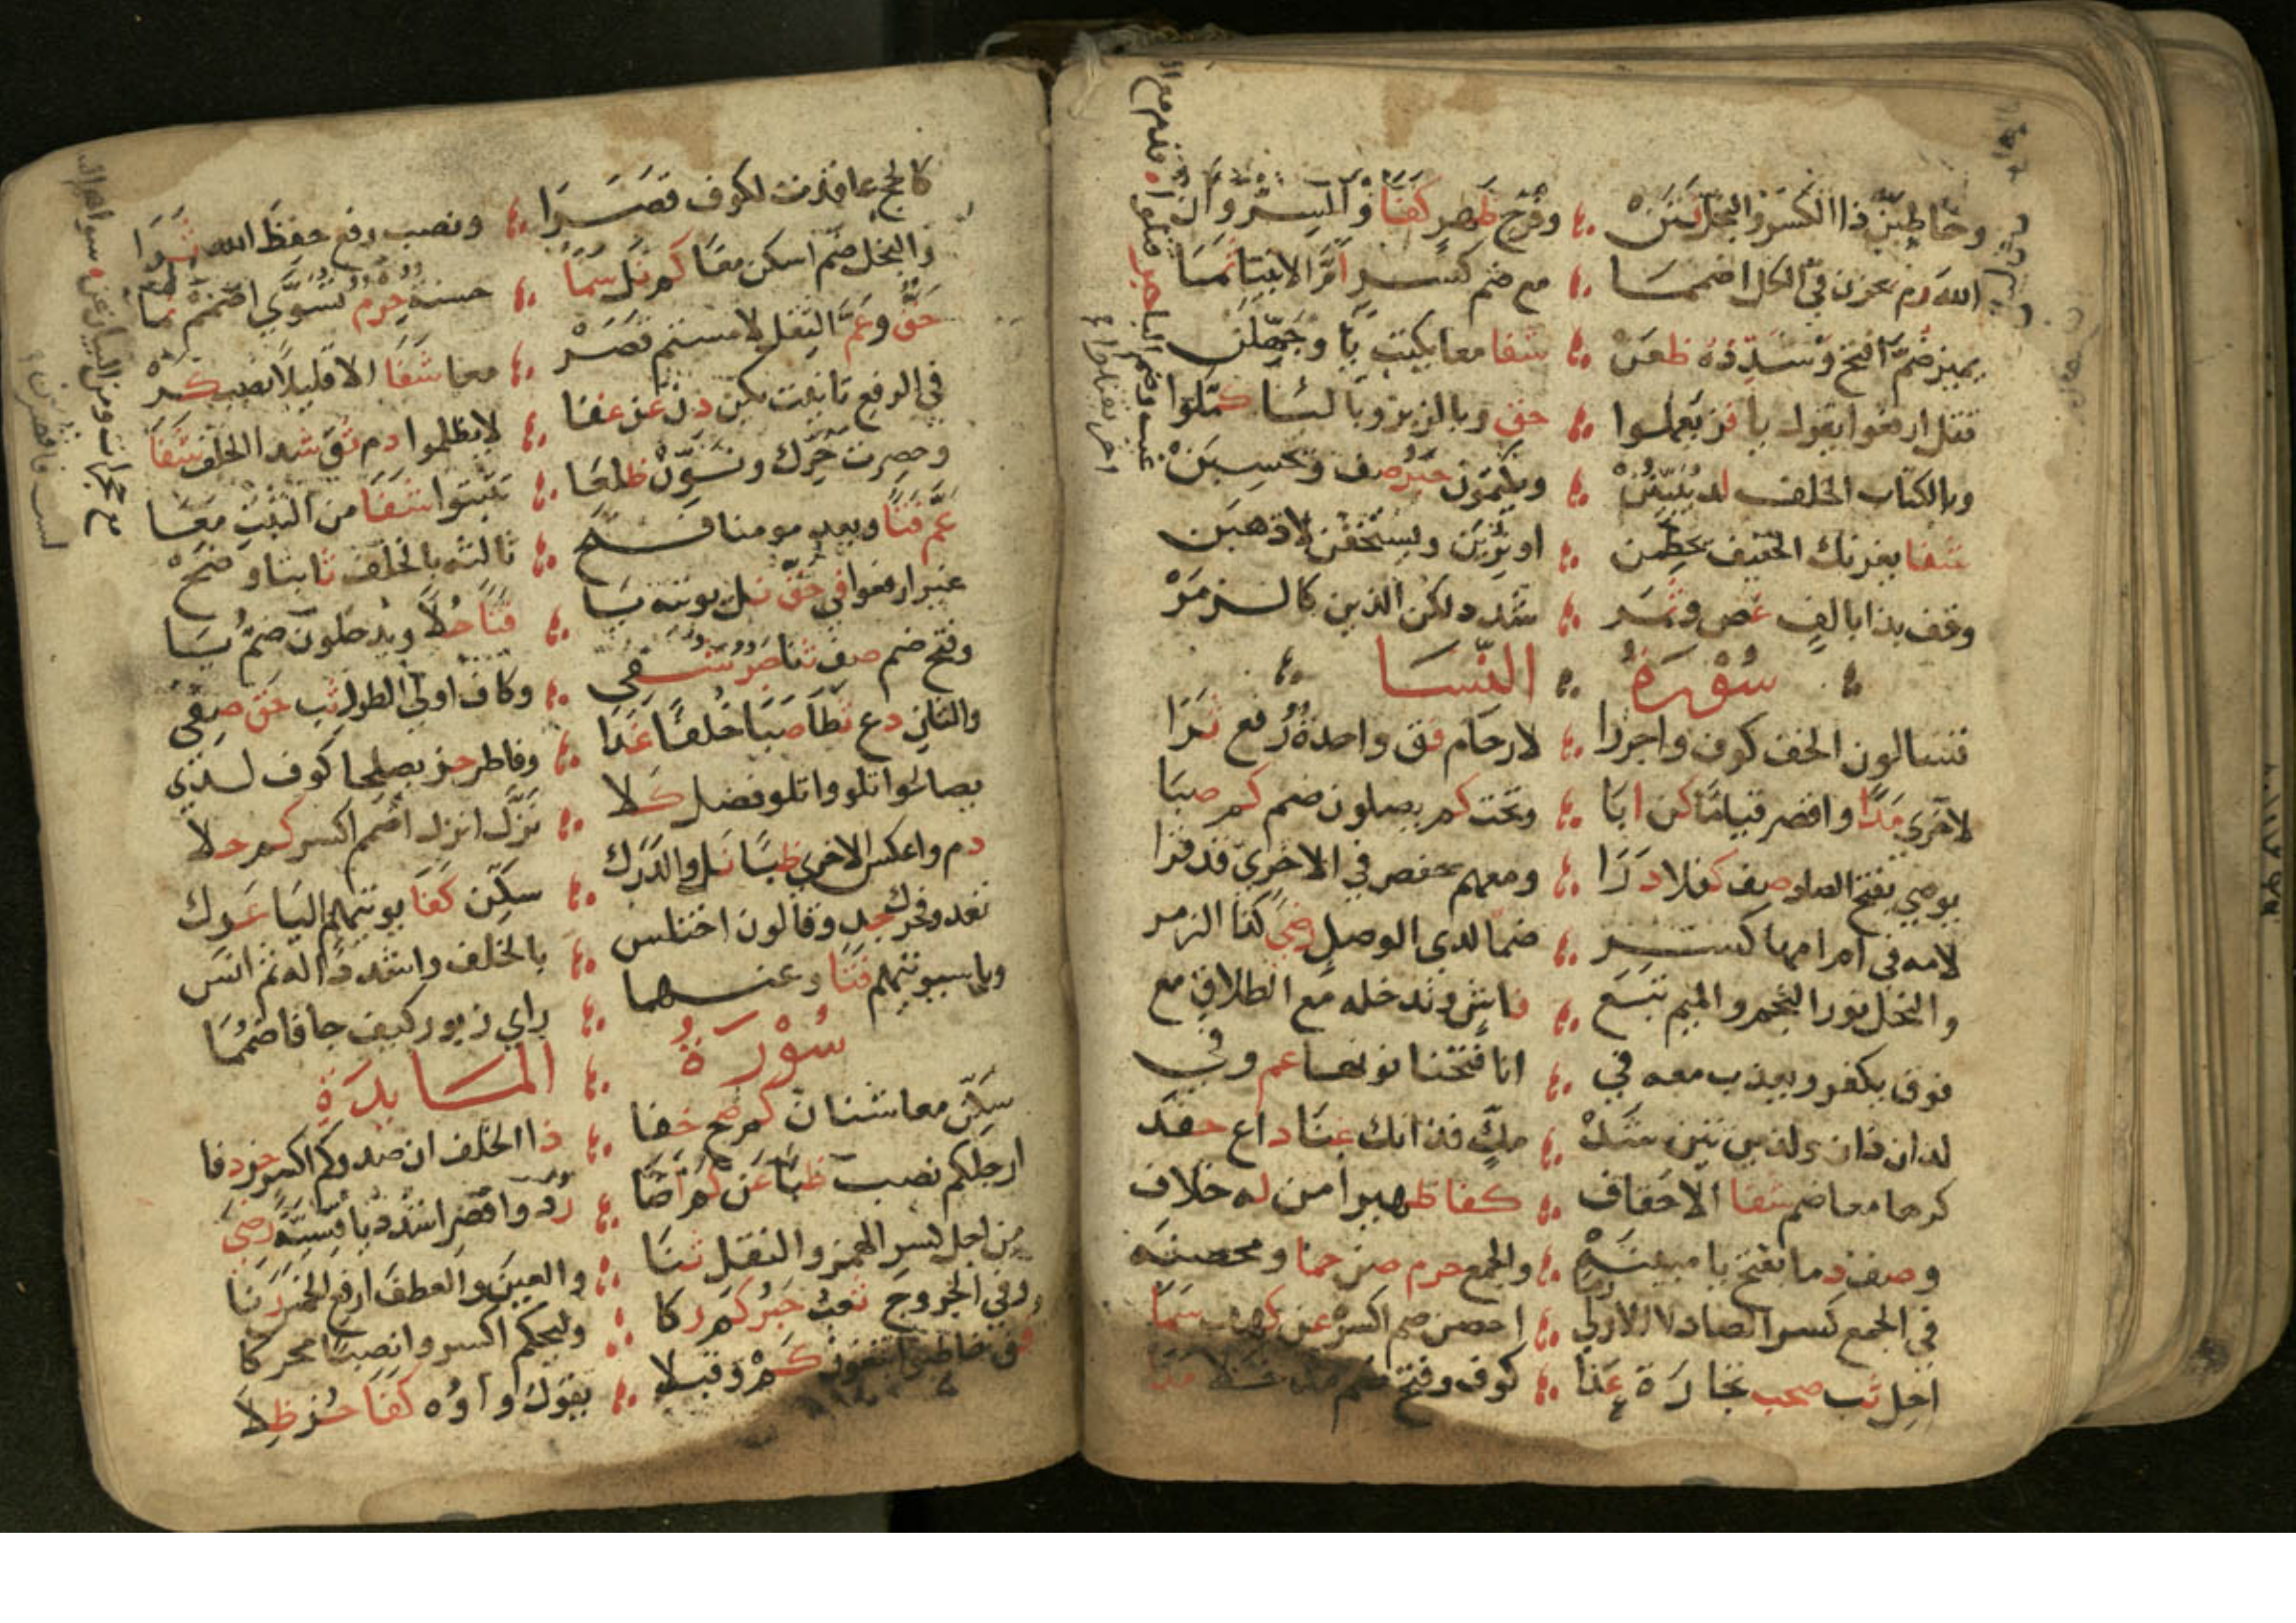 وخاطبن ذا الكفر والبخل فنن ؞ وفرح ظهر كفا والميسر وال
الله رم يحزن في الكل اضمما ؞ مع ضم كسر ام الانبيا ثما
يميز ضم افتح وشدده ظعن ؞ شفا معا يكتب يا وجهلن
قتل ارفعوا يقول يا فز يعملوا ؞ حق وبالزبر وبا لسا كملوا
وبالكتاب الخلف لذ يبينن ؞ ويكتمون حبر صف ويحسبن
شفا يغرنك الخفيف يحطمن ؞ او نرين ويستخفن لا ذهبن
وقف بذا بالف غص وثمر ؞ شدد لكن الذين كالزمر
سورة النسا
تسالون الخف كوف واجررا ؞ لارحام فق واحدة رفع ثرا
لاخرى مدا واقصر قياما كن ابا ؞ وتحت كم يصلون ضم كم صبا
يوصي بفتح الصاد صف كفلا درا ؞ ومعهم حفص في الاخرى قد قرا
لامه في ام امها كسر ؞ ضما لدي الوصل رضي كذا الزمر
والنحل نور النجم والميم تبع ؞ فاش وندخله مع الطلاق مع
فوق يكفر ويعذب معه في ؞ انا فتحنا نونها عم وفي
لذان ذان ولذين تين شد ؞ مك فذانك غنا داع حفد
كرها معا ضم شفا الاحقاف ؞ كفا ظهيرا من له خلاف
وصف دما بفتح يا مبينه ؞ والجمع حرم صن حما ومحصنه
في الجمع كسر الصاد لا الاولى رما ؞ احصن ضم اكسر عن كهف سما
احل ثب صحب تجارة عدا ؞ كوف وفتح ضم مدخلا مدا
كالحج عاقدت لكوف قصرا ؞ ونصب رفع حفظ الله ثرا
والبخل ضم اسكن معا كم نل سما ؞ حسنة حرم تسوى اضمم نما
حق وعم الثقل لامستم قصر ؞ معا شفا الا قليلا نصب كر
في الرفع تانيث يكن دن عن غفا ؞ لا يظلموا دم ثق شذا الخلف شفا
وحصرت حرك ونون ظلعا ؞ تثبتوا شفا من الثبت معا
عم فتا وبعد مومنا فتح ؞ ثالثه بالخلف ثابتا وضح
غير ارفعوا في حق نل نوتيه يا ؞ فتا حلا ويدخلون ضم يا
وفتح ضم صف ثنا حبر شفي ؞ وكاف اولى الطول ثب حق صفي
والثاني دع ثطا صبا خلفا غدا ؞ وفاطر حز يصلحا كوف لدي
يصالحا تلووا تلو فضل كلا ؞ نزل انزل اضمم اكسر كم حلا
دم واعكس الاخرى ظبا نل والدرك ؞ سكن كفا يوتيهم اليا عرك
تعدوا فحرك جد وقالون اختلس ؞ بالخلف واشدد داله ثم انس
ويا سيوتيهم فتا وعنهما ؞ زاي زبور كيف جا فاضمما
سورة المايدة
سكن معا شنان كم صح خفا ؞ ذا الخلف ان صدوكم اكسر حز دفا
ارجلكم نصب ظبا عن كم اضا ؞ رد واقصر اشدد يا قسية رضي
من اجل كسر الهمز والنقل ثنا ؞ والعين والعطف ارفع الخمس رنا
وفي الجروح ثعب حبر كم ركا ؞ وليحكم اكسر وانصبا محركا
فق خاطبوا يبغون كم وقبلا ؞ يقول واوه كفا حز ظلا